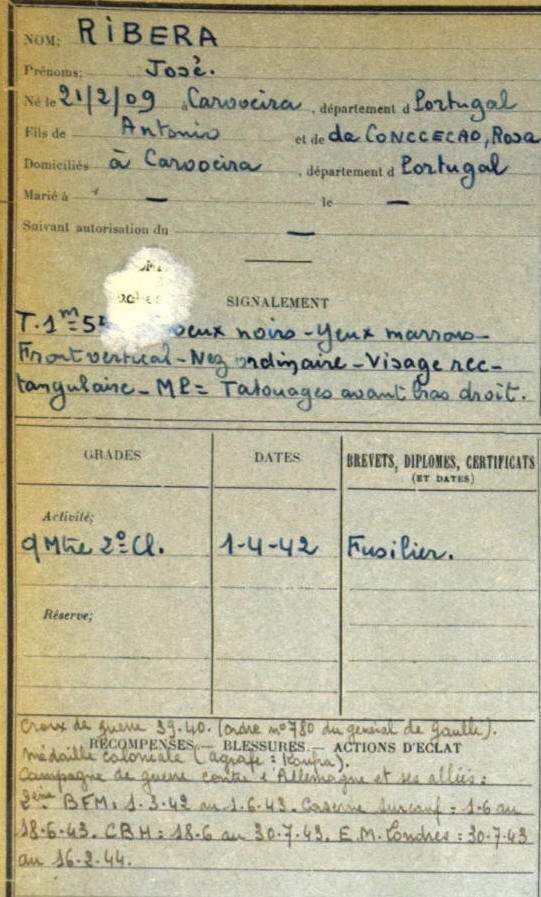 NOM: RIBERA
Prénoms: José.
Né le 21/2/09 à Carvoeira, département d Portugal
Fils de Antonio et de da CONCCECAO, Rosa
Domiciliés à Carvoeira, département d Portugal
Marié à — le —
Suivant autorisation du —
SIGNALEMENT
T. 1m=55 noirs - Yeux marrons -
Front vertical - Nez ordinaire - Visage rec-
tangulaire - MP= Tatouages avant bras droit.
GRADES DATES BREVETS, DIPLOMES, CERTIFICATS
(ET DATES)
Activité;
qMtre 2e Cl. 1-4-42 Fusilier.
Réserve;
Croix de guerre 39.40. (ordre n°780 du général de Gaulle).
RÉCOMPENSES — BLESSURES — ACTIONS D'ECLAT
médaille coloniale (agrafe: Koufra).
Campagne de guerre contre l'Allemagne et ses alliés:
2ème BFM: 1.3.42 au 1.6.43. Caserne Surcouf: 1.6 au
18.6.43. CBH: 18.6 au 30.7.43. E.M. Londres: 30.7.43
au 16.2.44.